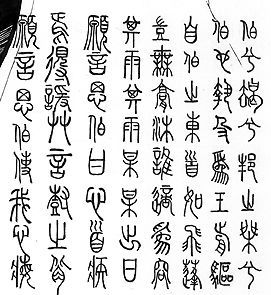 伯兮朅兮邦之桀兮
伯也執殳爲王前驅
自伯之東首如飛蓬
豈無膏沐誰適爲容
其雨其雨杲杲出日
願言思伯甘心首疾
焉得諼艸言樹之背
願言思伯使我心痗